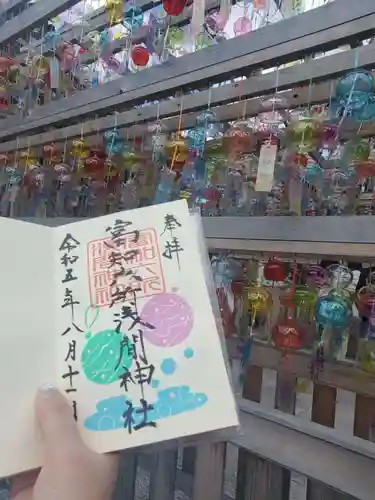 奉拝
富知六所浅間神社
令和五年八月十一日